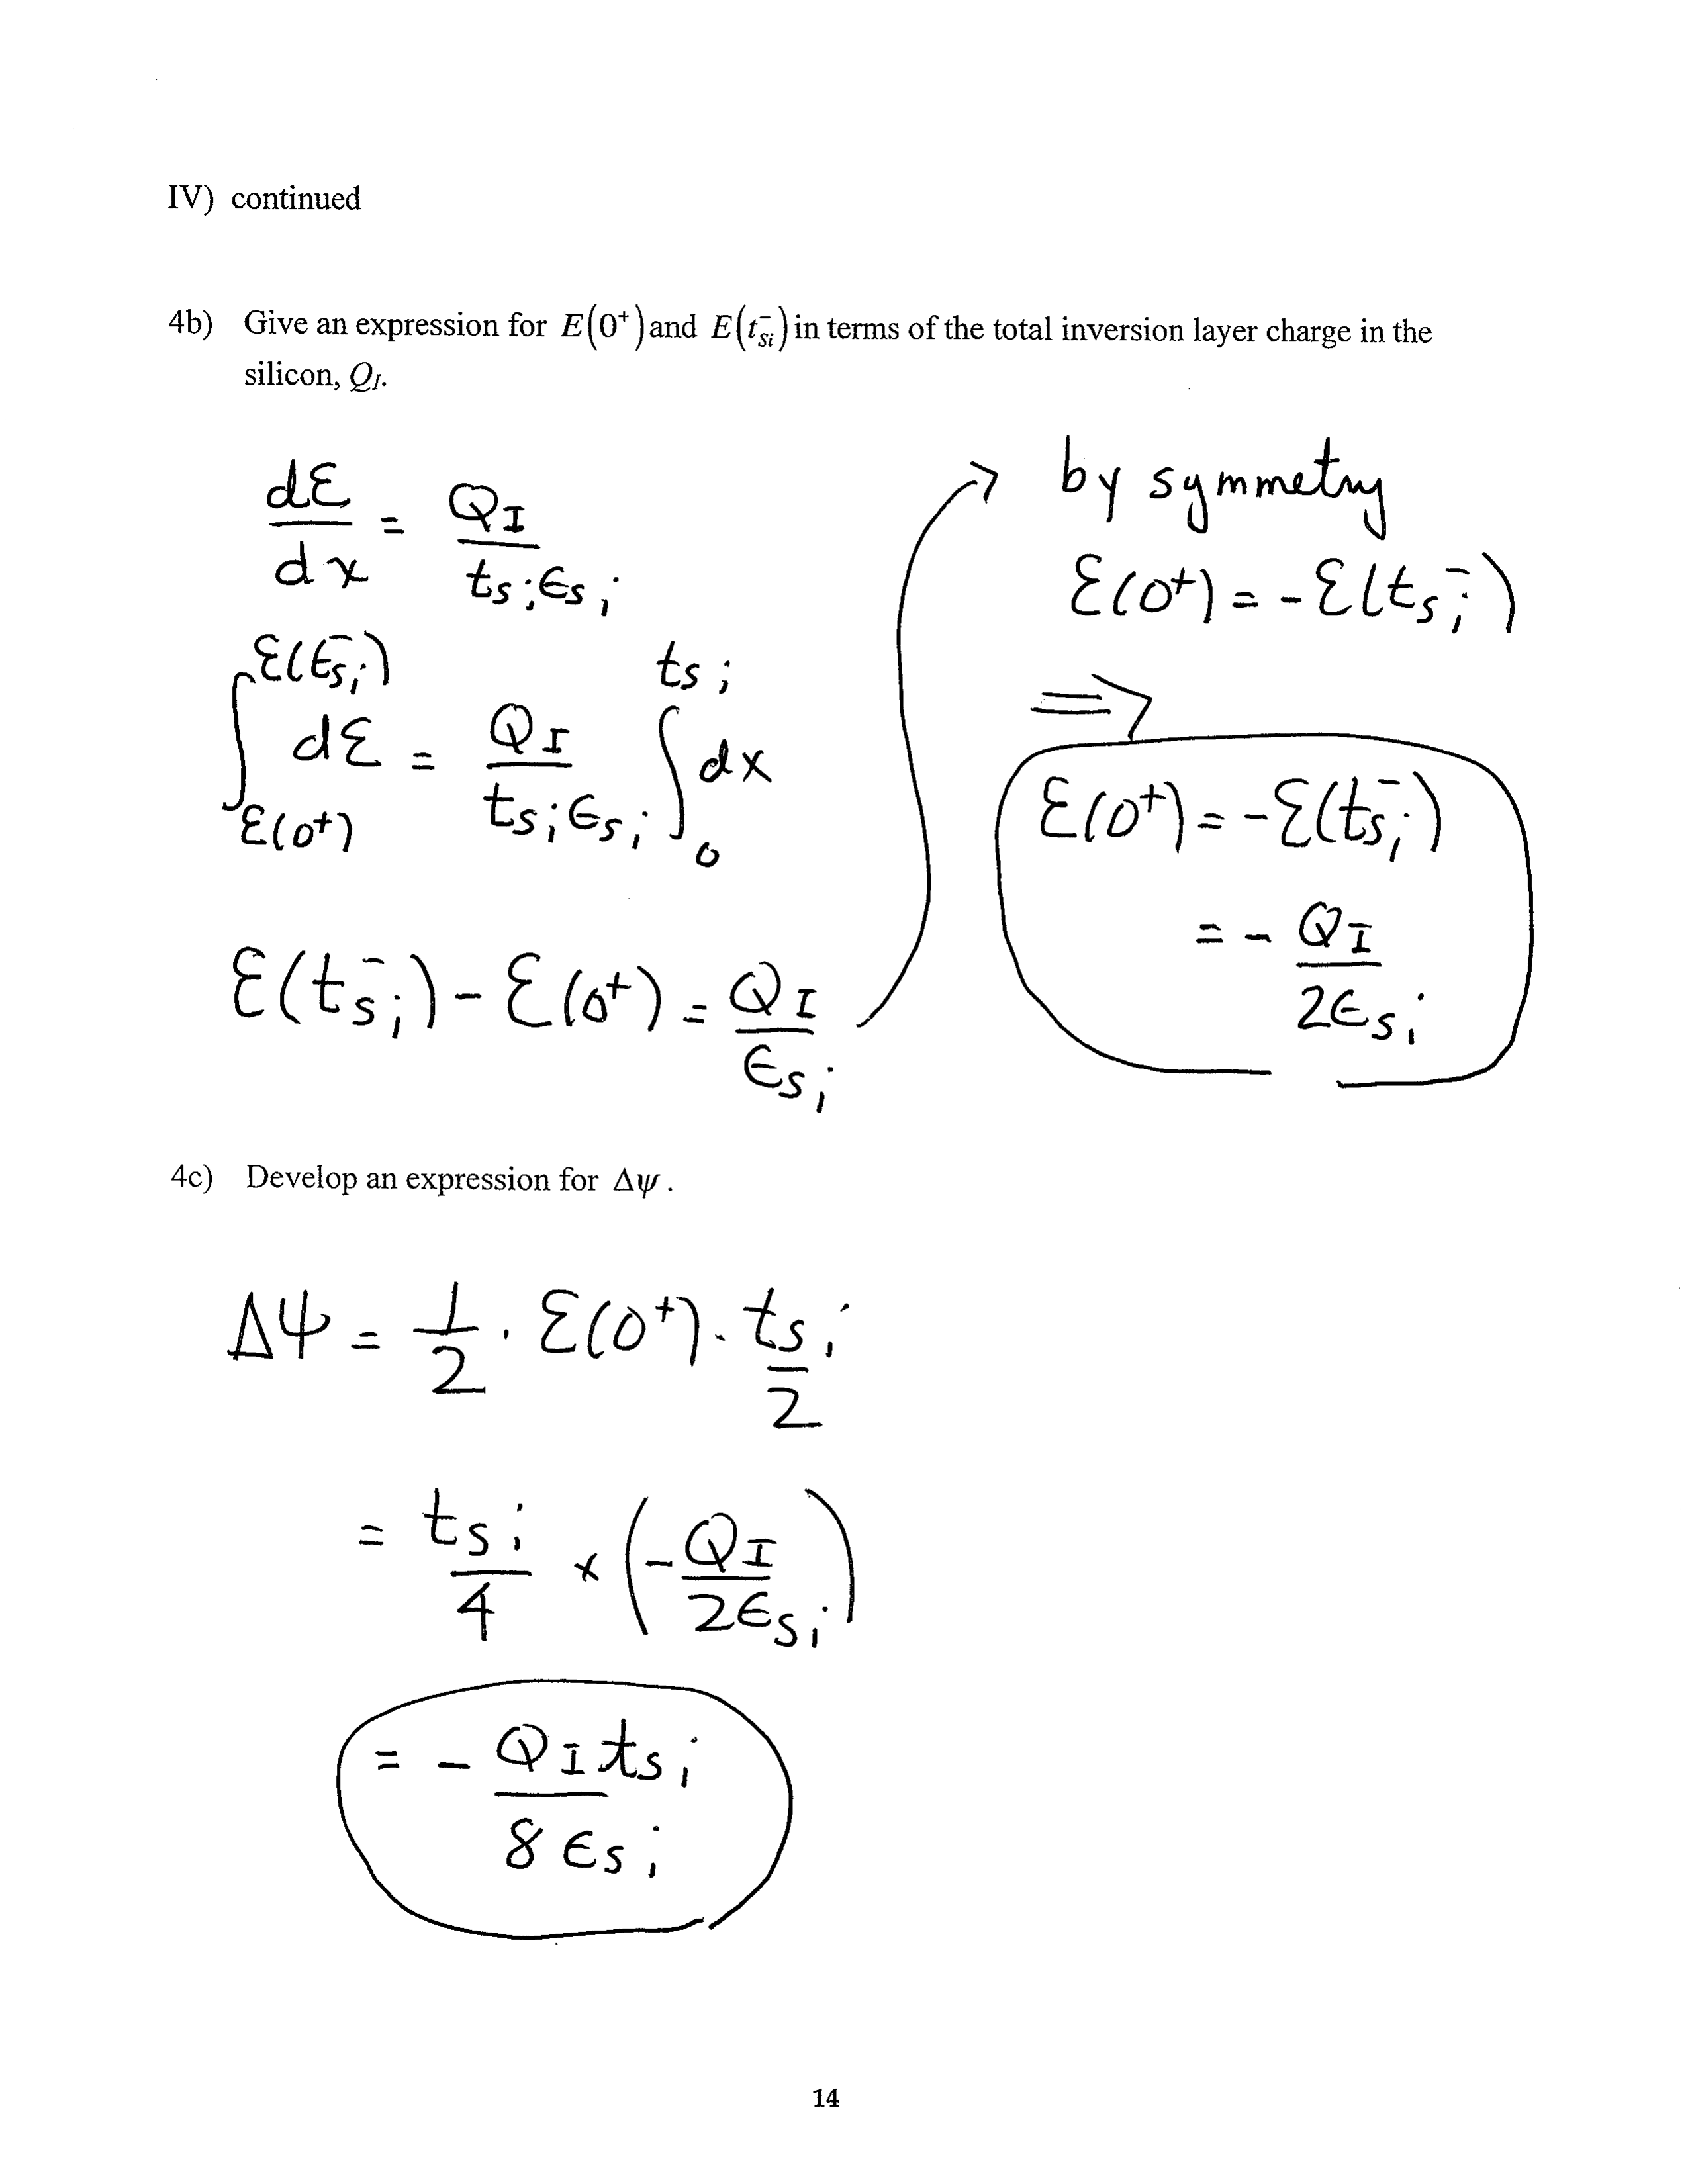 IV) continued
4b) Give an expression for E(0⁺) and E(t⁻_Si) in terms of the total inversion layer charge in the
silicon, Q_I.
dℰ/dx = Q_I/(t_Si ϵ_Si)
∫_{ℰ(0⁺)}^{ℰ(t⁻_Si)} dℰ = Q_I/(t_Si ϵ_Si) ∫_0^{t_Si} dx
ℰ(t⁻_Si) - ℰ(0⁺) = Q_I/ϵ_Si →
by symmetry
ℰ(0⁺) = -ℰ(t⁻_Si)
⇒
ℰ(0⁺) = -ℰ(t⁻_Si)
= - Q_I/(2ϵ_Si)
4c) Develop an expression for Δψ.
Δψ = 1/2 · ℰ(0⁺) · t_Si/2
= t_Si/4 × (-Q_I/(2ϵ_Si))
= - Q_I t_Si/(8 ϵ_Si)
14